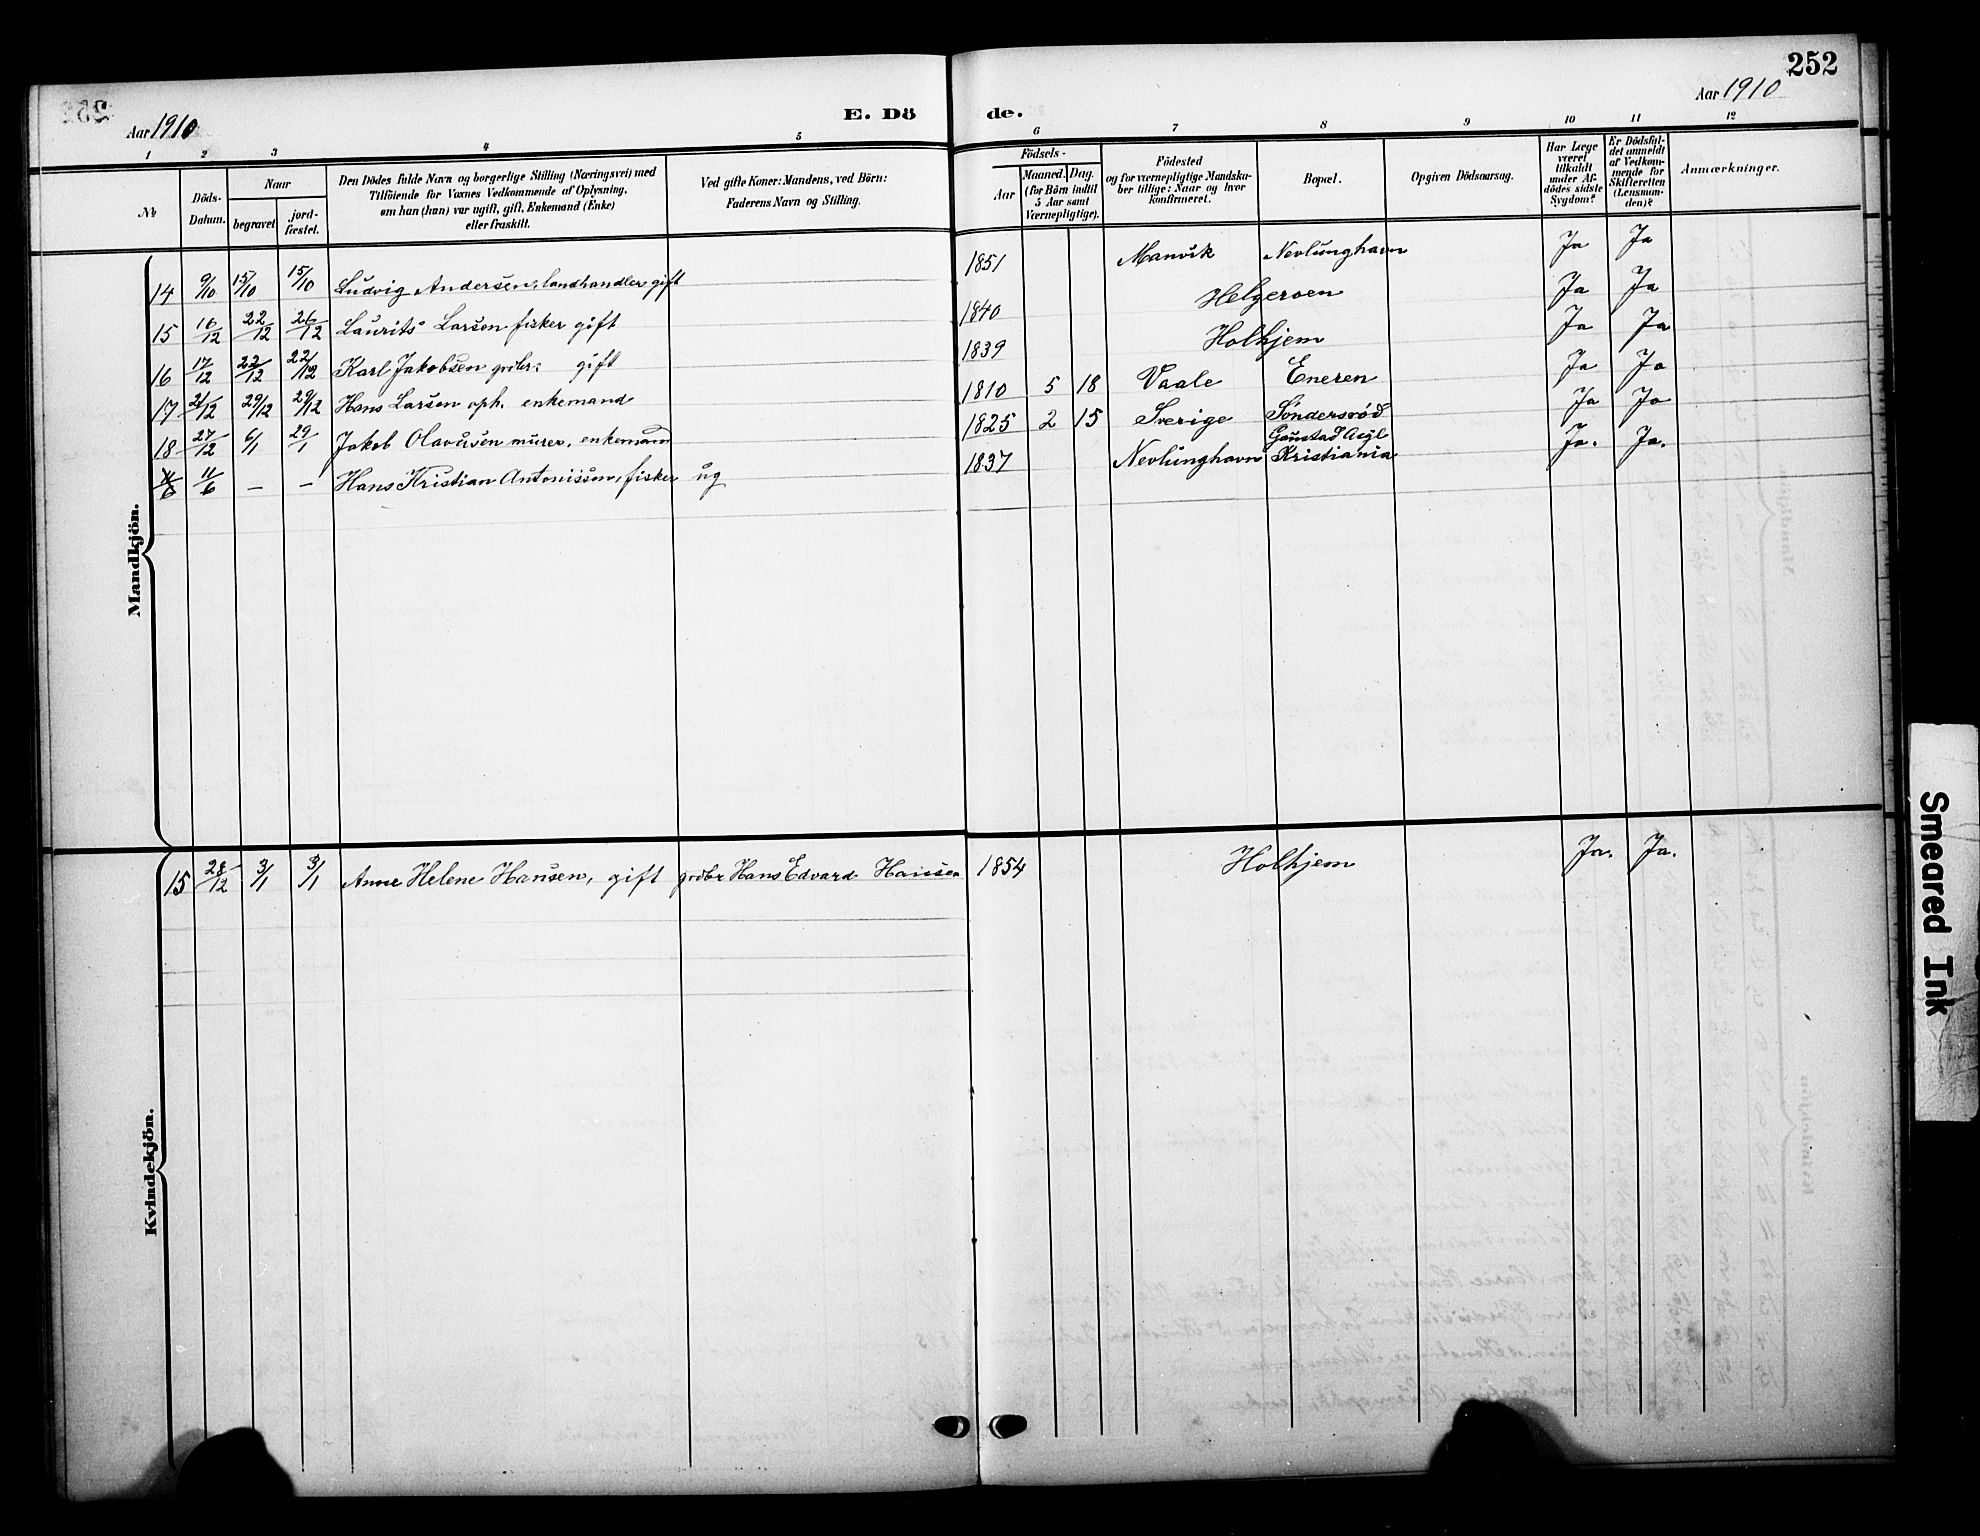 252
Aar 1910
E. Dö
de.
Aar 1910
1 2 3 4 5 6 7 8 9 10 11 12
№
Döds-
Datum.
Naar
begravet
jord-
fæstet.
Den Dödes fulde Navn og borgerlige Stilling (Næringsvei) med
Tilföiende for Voxnes Vedkommende af Oplysning,
om han (hun) var ugift, gift, Enkemand (Enke)
eller fraskilt.
Ved gifte Koner: Mandens, ved Börn:
Faderens Navn og Stilling.
Födsels-
Aar
Maaned.
Dag.
(for Börn indtil
5 Aar samt
Værnepligtige).
Födested
og for værnepligtige Mandska-
ber tillige: Naar og hvor
konfirmeret.
Bopæl.
Opgiven Dödsaarsag.
Har Læge
været
tilkaldt
under Af-
dödes sidste
Sygdom?
Er Dödsfal-
det anmeldt
af Vedkom-
mende for
Skifteretten
(Lensman-
den)?
Anmærkninger.
Mandkjön.
14 9/10 15/10 15/10 Ludvig Andersen, landhandler gift 1851 Manvik Nevlunghavn Ja Ja
15 16/12 22/12 26/12 Laurits Larsen fisker gift 1840 Helgeroen Ja Ja
16 17/12 22/12 22/12 Karl Jakobsen grdbr. gift 1839 Holhjem Ja Ja
17 21/12 29/12 29/12 Hans Larsen oph. enkemand 1810 5 18 Vaale Eneren Ja Ja
18 27/12 6/1 29/1 Jakob Olavusen murer, enkemann 1825 2 15 Sverige Söndersröd Ja Ja
Gaustad Asyl
11/6 — — Hans Kristian Antonissen, fisker ug 1837 Nevlunghavn Kristiania Ja. Ja.
Kvindekjön.
15 28/12 3/1 3/1 Anne Helene Hansen, gift grdbr Hans Edvard Hansen 1854 Holhjem Ja. Ja.
Smeared Ink